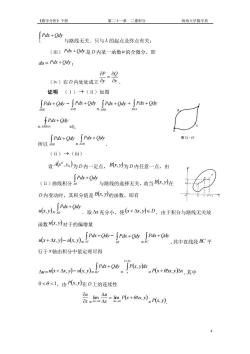 《数学分析》下册 第二十一章 二重积分 海南大学数学系
∫_L Pdx + Qdy 与路线无关，只与 L 的起点及终点有关；
(iii) Pdx + Qdy 是 D 内某一函数 u 的全微分，即
du = Pdx + Qdy；
(iv) 在 D 内处处成立 ∂P/∂y = ∂Q/∂x .
证明 (i) → (ii) 如图
所以
(ii) → (iii)
为 D 内一定点， B(x, y) 为 D 内任意一点，由
(ii) 曲线积分 ∫_AB Pdx + Qdy 与路线的选择无关，故当 B(x, y) 在
D 内变动时，其积分值是 B(x, y) 的函数，即有
u(x, y) = ∫_AB Pdx + Qdy . 取 Δx 充分小，使 (x + Δx, y) ∈ D，由于积分与路线无关故
函数 u(x, y) 对于 x 的偏增量
u(x + Δx, y) − u(x, y) = ∫_AC Pdx + Qdy − ∫_AB Pdx + Qdy = ∫_BC Pdx + Qdy , 其中直线段 BC 平
行于 x 轴由积分中值定理可得
Δu = u(x + Δx, y) − u(x, y) = ∫_BC Pdx + Qdy = ∫_x^{x+Δx} P(x, y)dx = P(x + θΔx, y)Δx , 其中
0 < θ < 1，由 P(x, y) 在 D 上的连续性
∂u/∂x = lim_{Δx→0} Δu/Δx = lim_{Δx→0} P(x + θΔx, y) = P(x, y)
4